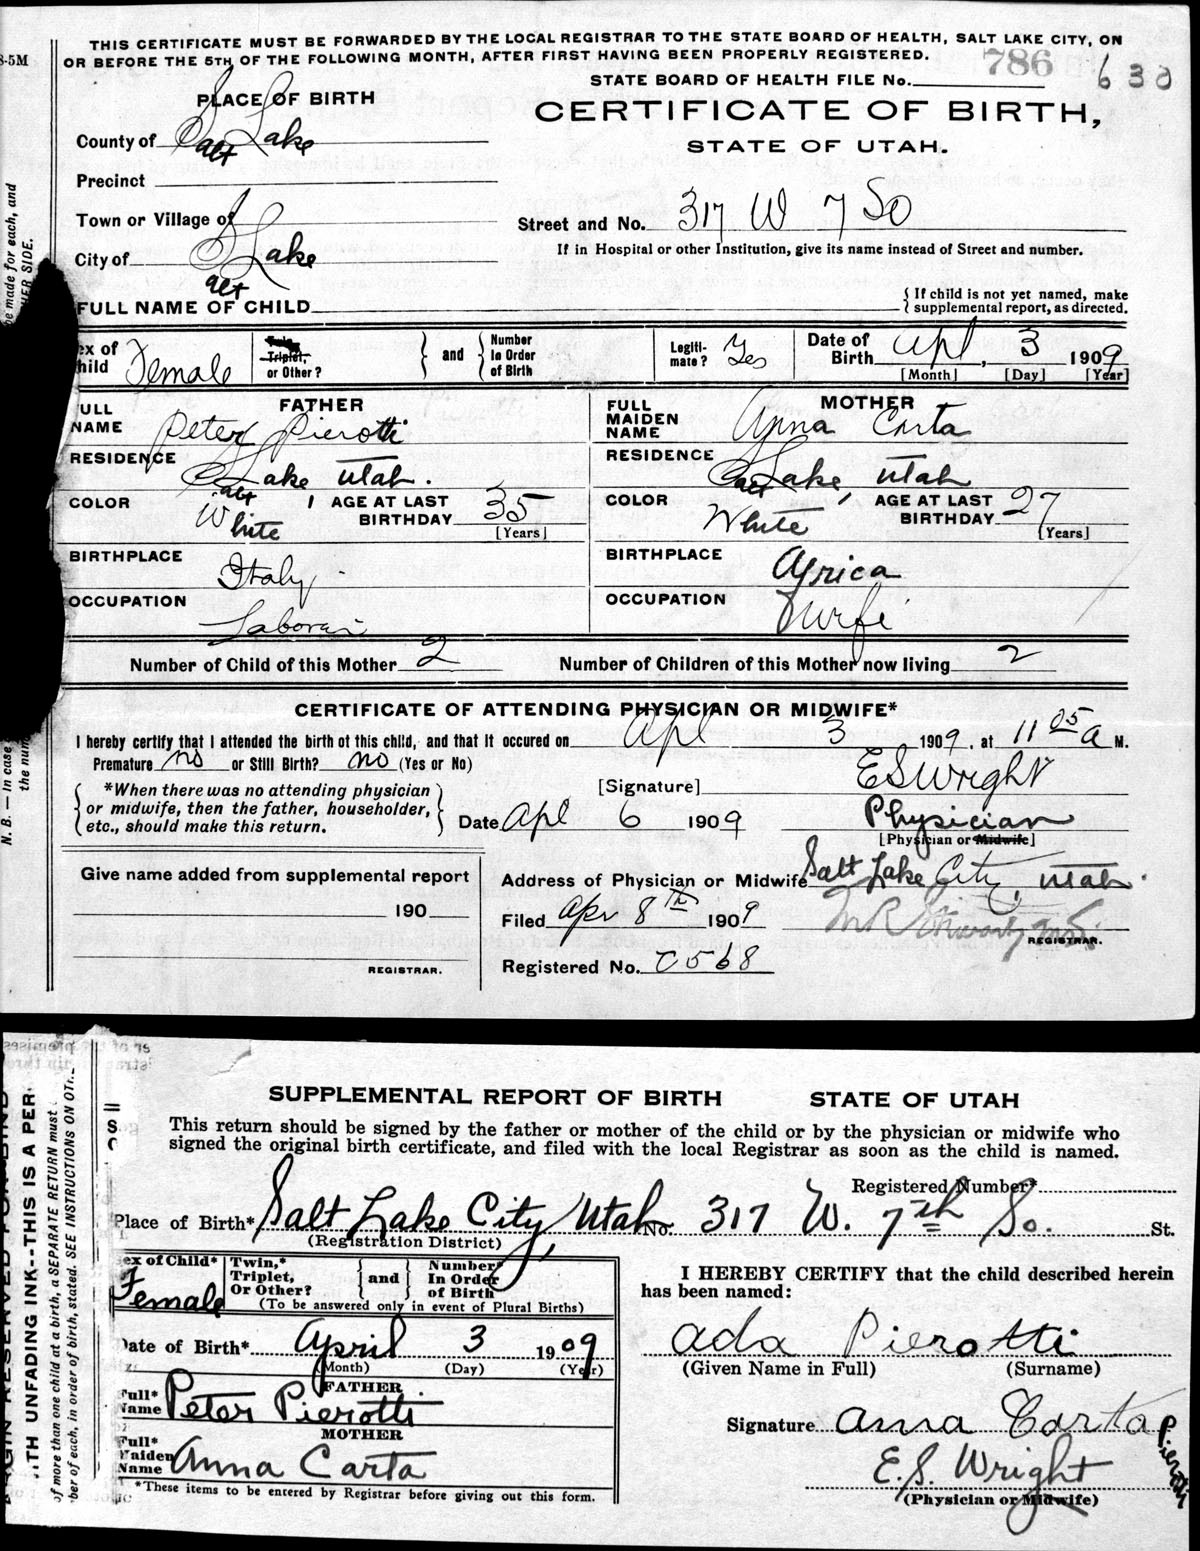 THIS CERTIFICATE MUST BE FORWARDED BY THE LOCAL REGISTRAR TO THE STATE BOARD OF HEALTH, SALT LAKE CITY, ON
OR BEFORE THE 5TH OF THE FOLLOWING MONTH, AFTER FIRST HAVING BEEN PROPERLY REGISTERED.
786
STATE BOARD OF HEALTH FILE No. 630
PLACE OF BIRTH
CERTIFICATE OF BIRTH,
STATE OF UTAH.
County of Salt Lake
Precinct
Town or Village of
Street and No. 317 W 7 So
If in Hospital or other Institution, give its name instead of Street and number.
City of Salt Lake
FULL NAME OF CHILD
{ If child is not yet named, make
supplemental report, as directed.
ex of
hild Female
Triplet,
or Other?
and
Number
In Order
of Birth
Legiti-
mate? Yes
Date of
Birth Apl, 3 1909
[Month] [Day] [Year]
FATHER
ULL
NAME Peter Pierotti
RESIDENCE Salt Lake Utah.
COLOR White
AGE AT LAST
BIRTHDAY 35
[Years]
BIRTHPLACE Italy
OCCUPATION Laborer
MOTHER
FULL
MAIDEN
NAME Anna Carta
RESIDENCE Salt Lake, Utah
COLOR White
AGE AT LAST
BIRTHDAY 27
[Years]
BIRTHPLACE Africa
OCCUPATION Wife
Number of Child of this Mother 2 Number of Children of this Mother now living 2
CERTIFICATE OF ATTENDING PHYSICIAN OR MIDWIFE*
I hereby certify that I attended the birth of this child, and that it occured on Apl 3 1909, at 11 05 a M.
Premature no or Still Birth? no (Yes or No)
*When there was no attending physician
or midwife, then the father, householder,
etc., should make this return.
[Signature] E S Wright
Date Apl 6 1909 Physician
[Physician or Midwife]
Give name added from supplemental report
190
REGISTRAR.
Address of Physician or Midwife Salt Lake City, Utah.
Filed Apr 8th 1909
REGISTRAR.
Registered No. C568
N. B. — In case
be made for each, and
HER SIDE.
the num
8-5M
SUPPLEMENTAL REPORT OF BIRTH STATE OF UTAH
This return should be signed by the father or mother of the child or by the physician or midwife who
signed the original birth certificate, and filed with the local Registrar as soon as the child is named.
Registered Number*
Place of Birth* Salt Lake City, Utah No. 317 W. 7th So. St.
(Registration District)
ex of Child*
Female
Twin,*
Triplet,
Or Other?
and
Number*
In Order
of Birth
(To be answered only in event of Plural Births)
Date of Birth* April 3 1909
(Month) (Day) (Year)
FATHER
Full*
Name Peter Pierotti
MOTHER
Full*
Maiden
Name Anna Carta
*These items to be entered by Registrar before giving out this form.
I HEREBY CERTIFY that the child described herein
has been named:
Ada Pierotti
(Given Name in Full) (Surname)
Signature Anna Carta Pierotti
E. S. Wright
(Physician or Midwife)
ITH UNFADING INK--THIS IS A PER
of more than one child at a birth, a SEPARATE RETURN must
ber of each, in order of birth, stated. SEE INSTRUCTIONS ON OT